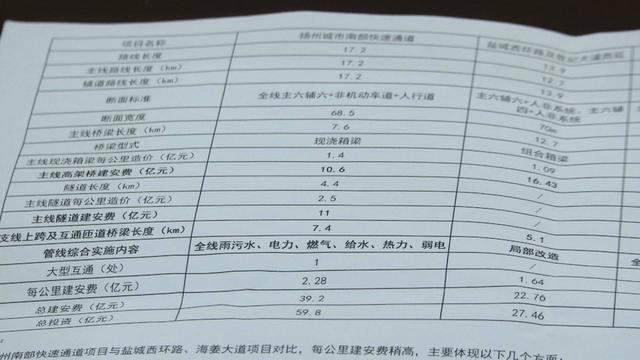 项目名称 扬州城市南部快速通道 盐城西环路及世纪大道西延
路线长度 17.2 13.9
主线路线长度(km) 17.2 12.7
辅道路线长度(km) 17.2 13.9
断面标准 全线主六辅六+非机动车道+人行道 主六辅六+人非系统、主六辅四+人非系统
断面宽度 68.5 70m
主线桥梁长度(km) 7.6 12.7
桥梁型式 现浇箱梁 组合箱梁
主线现浇箱梁每公里造价(亿元) 1.4 1.09
主线高架桥建安费(亿元) 10.6 16.43
隧道长度(km) 4.4 /
主线隧道每公里造价(亿元) 2.5 /
主线隧道建安费(亿元) 11 /
支线上跨及互通匝道桥梁长度(km) 7.4 5.1
管线综合实施内容 全线雨污水、电力、燃气、给水、热力、弱电 局部改造
大型互通(处) 1 /
每公里建安费(亿元) 2.28 1.64
总建安费(亿元) 39.2 22.76
总投资(亿元) 59.8 27.46
州南部快速通道项目与盐城西环路、海姜大道项目对比,每公里建安费稍高,主要体现以下几个方面: